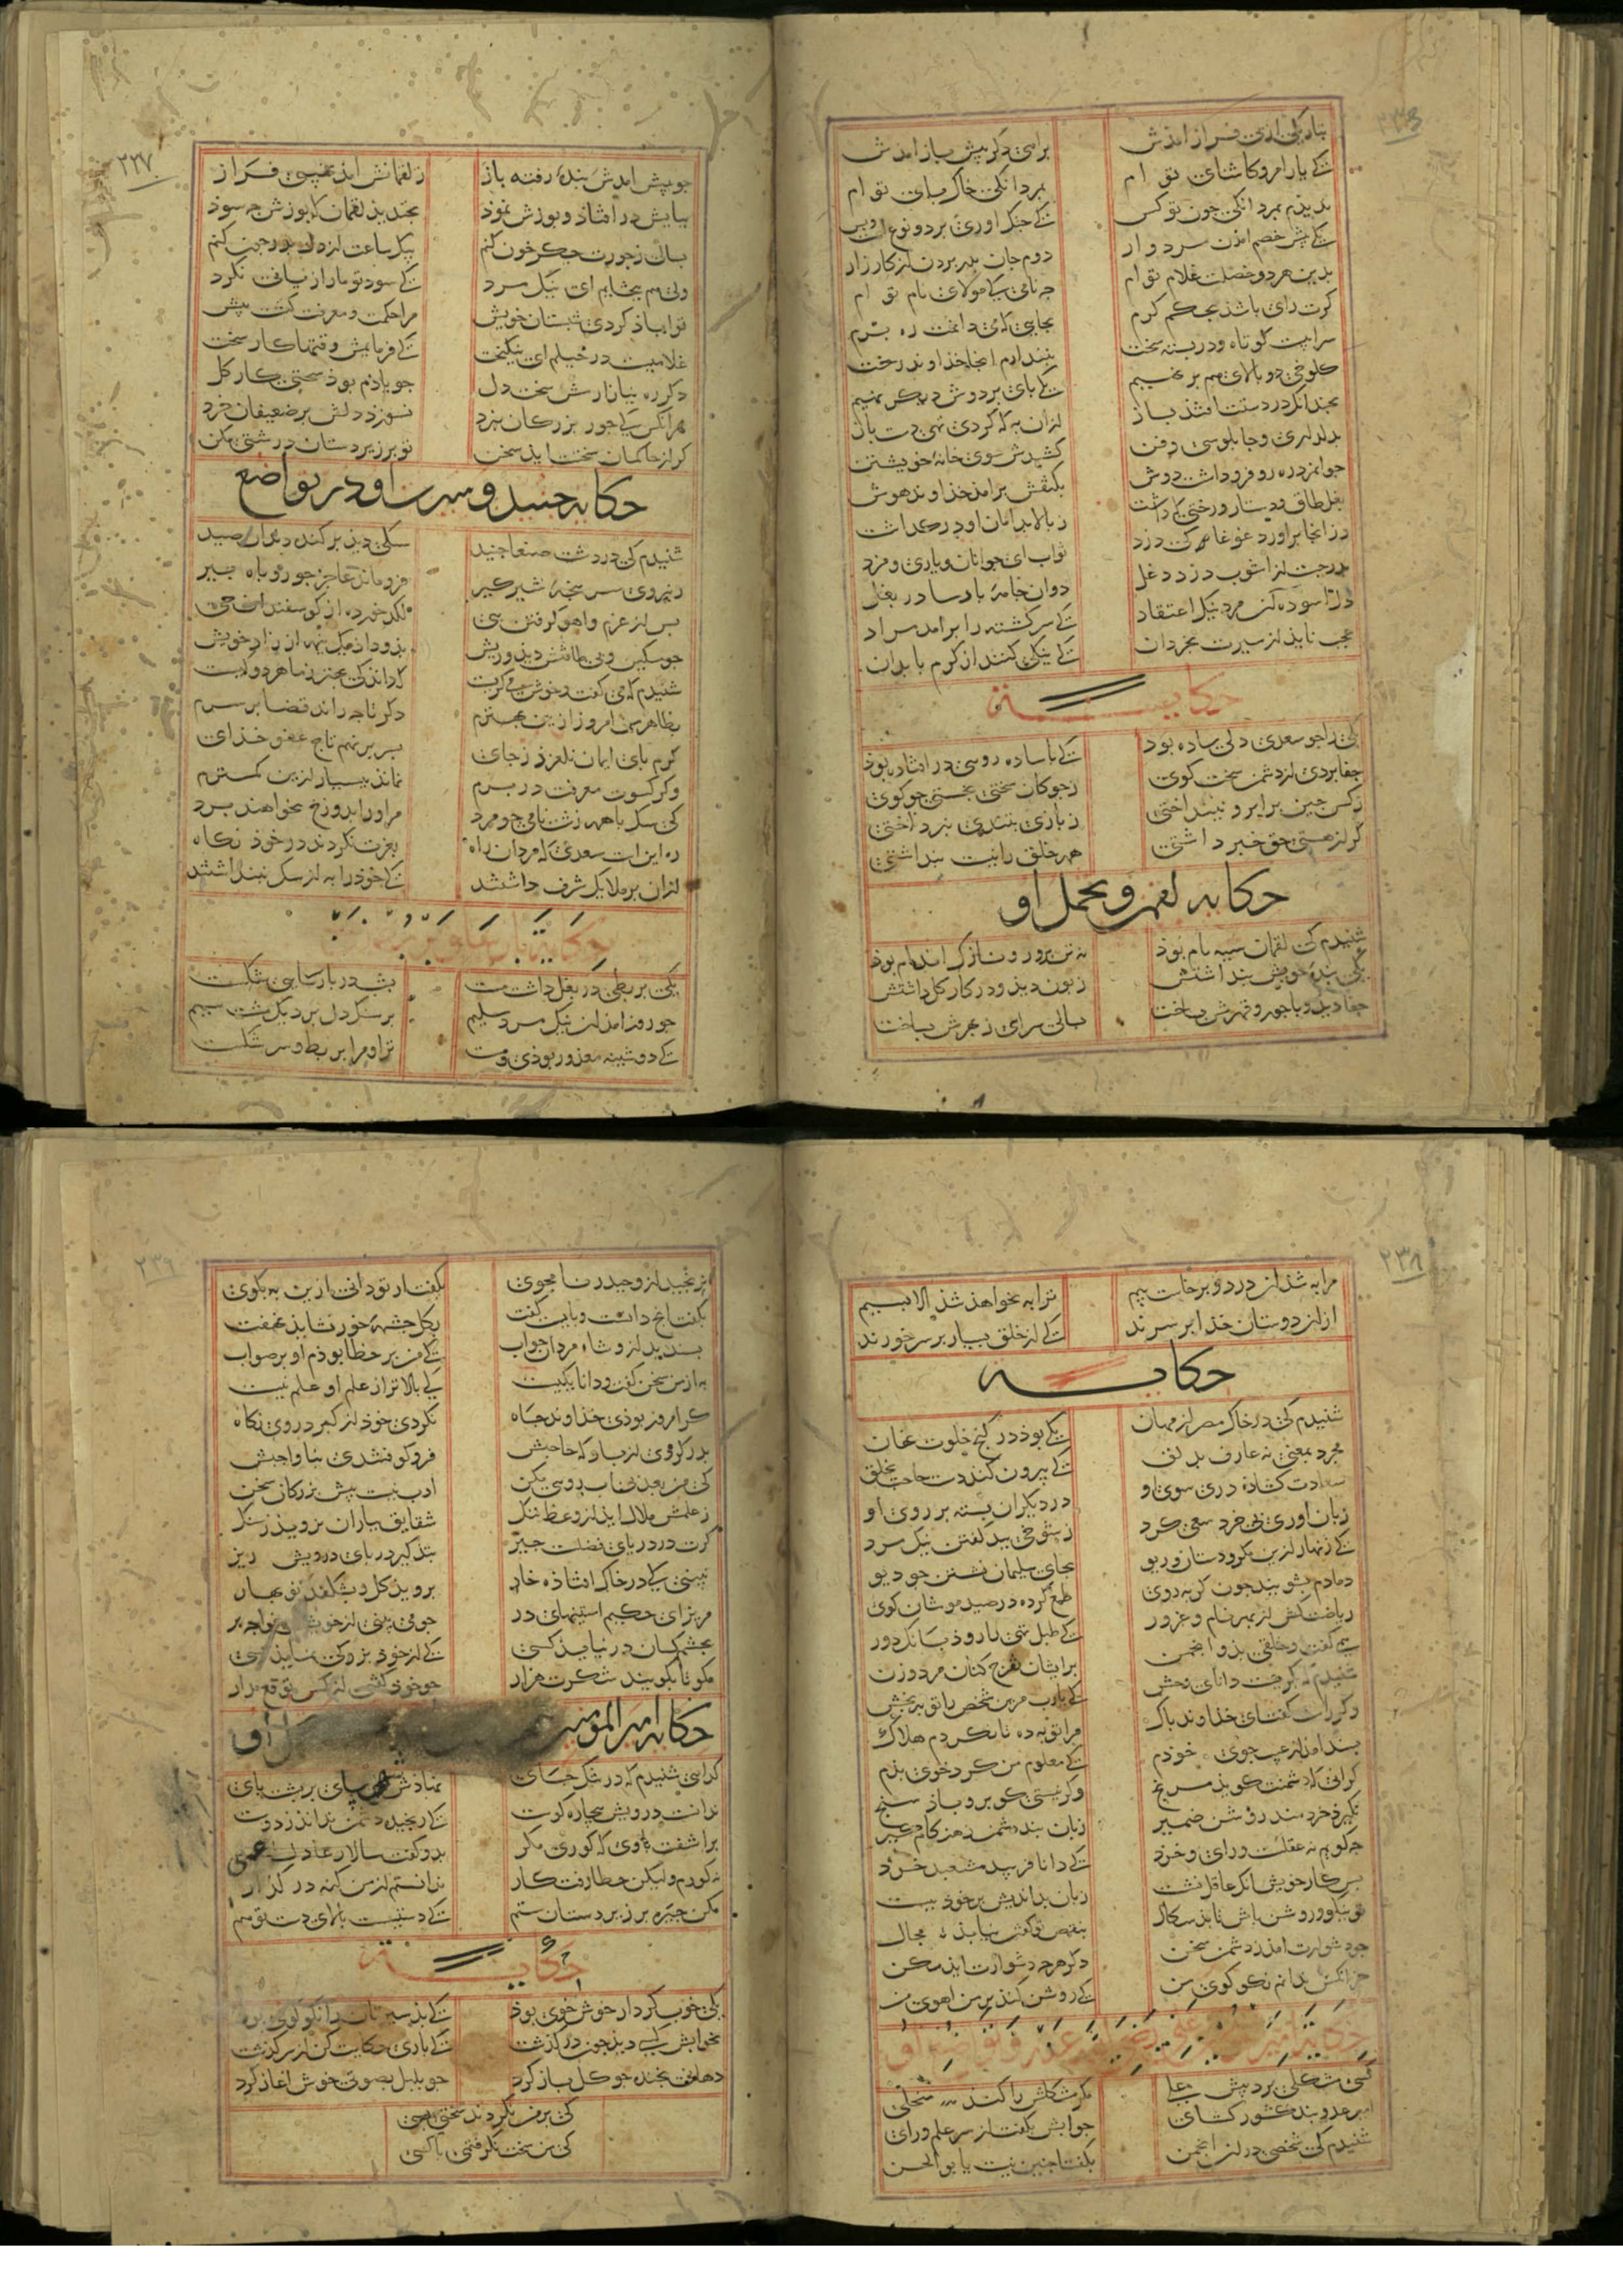 ۲۳۶
بتاریکی از وی فراز آمدش برامی دکر پیش باز آمدش
کے یارا مرو کاشنای تو ام بمردانکی خاک پای تو ام
ندیدم بمردانکی چون تو کس کے جنک اوری بر دو نوع است و بس
کے پیش خصم امدن مردوار دوم جان بدر بردن از کارزار
بدین هر دو خصلت غلام تو ام چه نامی کے مولای نام تو ام
کرت رای باشد بحکم کرم بجایی که می دانمت ره برم
سراییست کوتاه و در بسته سخت نپندارم انجا خداوند رخت
کلوخی دو بالای هم بر نهیم یکے پای بر دوش دیکر نهیم
بچندانک در دستت افتد بساز ازان به که کردی تهی دست باز
بدلداری و چابلوسی و فن کشیدش سوی خانه خویشتن
جوانمرد ره رو فرو داشت دوش بکتفش برامد خداوند هوش
بغلطاق و دستار و رختی که داشت ز بالا بدامان او در کذاشت
وز انجا براورد غوغا که دزد ثواب ای جوانان و یاری و مزد
بدر جست از اشوب دزد دغل دوان جامه پارسا در بغل
دل اسوده شد مرد نیک اعتقاد کے سر کشته را برامد مراد
عجب ناید از سیرت بخردان کے نیکی کنند از کرم با بدان
حکایـــــة
یکی را چو سعدی دلی ساده بود کے با ساده رویی در افتاده بود
جفا بردی از دشمن سخت کوی ز چوکان سختی بجستی چو کوی
ز کس چین بر ابرو نینداختی ز یاری بتندی نپرداختی
کر از هستی حق خبر داشتی همه خلق را نیست پنداشتی
حکایه لقمن و تحمل او
شنیدم که لقمان سیه فام بوذ نه تن پرور و نازک اندام بوذ
یکی بنده خویش پنداشتش زبون دید و در کار کل داشتش
جفا دید و با جور و قهرش بساخت بسالی سرای ز بهرش بساخت
۲۲۷
چو پیش امدش بنده رفته باز ز لقمانش امد نهیبی فراز
بپایش در افتاذ و پوزش نموذ بخندید لقمان که پوزش چه سوذ
بسالی ز جورت جکر خون کنم بیک ساعت از دل بدر چون کنم
ولی هم ببخشایم ای نیک مرد کے سود تو ما را زیانی نکرد
تو اباذ کردی شبستان خویش مرا حکمت و معرفت کشت بیش
غلامیست در خیلم ای نیکبخت کے فرمایمش وقتها کار سخت
دکر ره نیازارمش سخت دل چو یاذم بوذ سختی کار کل
هر انکس کے جور بزرکان نبرد نسوزد دلش بر ضعیفان خرد
کر از حاکمان سخت اید سخن تو بر زیر دستان درشتی مکن
حکایه جنید و سیرت او در تواضع
شنیدم که در دشت صنعا جنید سکی دید بر کنده دندان صید
ز نیروی سر پنجه شیر کیر فرو مانده عاجز چو روباه پیر
پس از غرم و اهو کرفتن بپی لکد خورده از کوسفندان حی
چو مسکین و بی طاقتش دید و ریش بذو داد یک نیمه از زاد خویش
شنیدم که می کفت و خوش می کریست که داند کی بهتر ز ما هر دو کیست
بظاهر من امروز ازین بهترم دکر تا چه راند قضا بر سرم
کرم پای ایمان نلغزد ز جای بسر بر نهم تاج عفو خذای
و کر کسوت معرفت در برم نماند ببسیار ازین کمترم
کی سک با همه زشت نامی چو مرد مر او را بدوزخ نخواهند برد
ره این است سعدی که مردان راه بعزت نکردند در خوذ نکاه
ازان بر ملایک شرف داشتند کے خوذ را به از سک نپنداشتند
یکی بربطی در بغل داشت مست بشب در سر پارسایی شکست
چو روز امد ان نیک مرد سلیم بر سنک دل برد یک مشت سیم
کے دوشینه معذور بوذی و مست ترا و مرا بربط و سر شکست
۲۳۸
مرا به شذ ان درد و برخاست بیم ترا به نخواهذ شذ الا بسیم
از ان دوستان خذا بر سرند کے از خلق بسیار بر سر خورند
حکایـــه
شنیدم کی در خاک وخش از مهان یکے بوذ در کنج خلوت نهان
مجرد بمعنی نه عارف بدلق کے بیرون کند دست حاجت بخلق
سعادت کشاذه دری سوی او در دیکران بسته بر روی او
زبان اوری بی خرد سعی کرد ز شوخی ببد کفتن نیک مرد
کے زنهار ازین مکر و دستان و ریو بجای سلیمان نشستن چو دیو
دمادم بشویند چون کربه روی طمع کرده در صید موشان کوی
ریاضت کش از بهر نام و غرور کے طبل تهی را روذ بانک دور
همی کفت و خلقی بذو انجمن بر ایشان تفرج کنان مرد و زن
شنیدم که بکریست دانای وخش کے یارب مرین شخص را توبه بخش
و کر راست کفت ای خذاوند پاک مرا توبه ده تا نکردم هلاک
پسند امذ از عیب جوی خوذم کے معلوم من کرد خوی بذم
کر انی که دشمنت کوید مرنج و کر نیستی کو برو باذ سنج
نکیرد خردمند روشن ضمیر زبان بند دشمن ز هنکامه کیر
پس کار خویش انک عاقل نشست زبان بد اندیش بر خود ببست
تو نیکو روش باش تا بد سکال بنقص تو کفتن نیابذ مجال
چو دشوارت امذ ز دشمن سخن دکر هرچه دشوارت اید مکن
جز انکس ندانم نکو کوی من کے روشن کند بر من اهوی من
کسی مشکلی برد پیش علی مکر مشکلش را کند منجلی
امیر عدو بند کشور کشای جوابش بکفت از سر علم و رای
شنیدم کی شخصی در ان انجمن بکفتا چنین نیست یا بو الحسن
۲۳۹
نرنجید ازو حیدر نامجوی بکفت ار تو دانی ازین به بکوی
بکفت انچ دانست و بایسته کفت بکل چشمه خور نشایذ نهفت
پسندید ازو شاه مردان جواب کے من بر خطا بوذم او بر صواب
به از من سخن کفت و دانا یکیست کے بالاتر از علم او علم نیست
کر امروز بوذی خذاوند جاه نکردی خوذ از کبر در وی نکاه
بدر کردی از بارکه حاجبش فرو کوفتندی بناواجبش
کی من بعد بی اب رویی مکن ادب نیست پیش بزرکان سخن
ز علمش ملال اید از وعظ ننک شقایق بباران نروید ز سنک
کرت در دریای فضلست خیز بتذکیر در پای درویش ریز
نبینی کے در خاک افتاذه خار بروید کل و بشکفد نو بهار
مریز ای حکیم استینهای در چو می بینی از خویشتن خواجه پر
بچشم کسان در نیایذ کسی کے از خوذ بزرکی نمایذ بسی
مکو تا بکویند شکرت هزار چو خوذ کفتی از کس توقع مدار
حکایه امیر المومنین
کدایی شنیدم که در تنک جای نهادش عمر پای بر پشت پای
ندانست درویش بیچاره کوست کے رنجیده دشمن نداند ز دوست
براشفت بر وی که کوری مکر بدو کفت سالار عادل عمر
نه کورم و لیکن خطا رفت کار ندانستم از من کنه در کذار
مکن خیره بر زیر دستان ستم کے دستیست بالای دست تو هم
حکایـــــة
یکی خوب کردار خوش خوی بوذ کے بذ سیرتان را نکو کوی بوذ
بخوابش کسی دید چون در کذشت کے باری حکایت کن از سر کذشت
دهانی بخنده چو کل باز کرد چو بلبل بصوتی خوش اغاز کرد
کی بر من نکردند سختی بسی
کی من سخت نکرفتمی با کسی